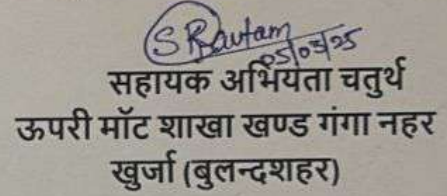 S Rautam
05/03/25
सहायक अभियंता चतुर्थ
ऊपरी मॉट शाखा खण्ड गंगा नहर
खुर्जा (बुलन्दशहर)